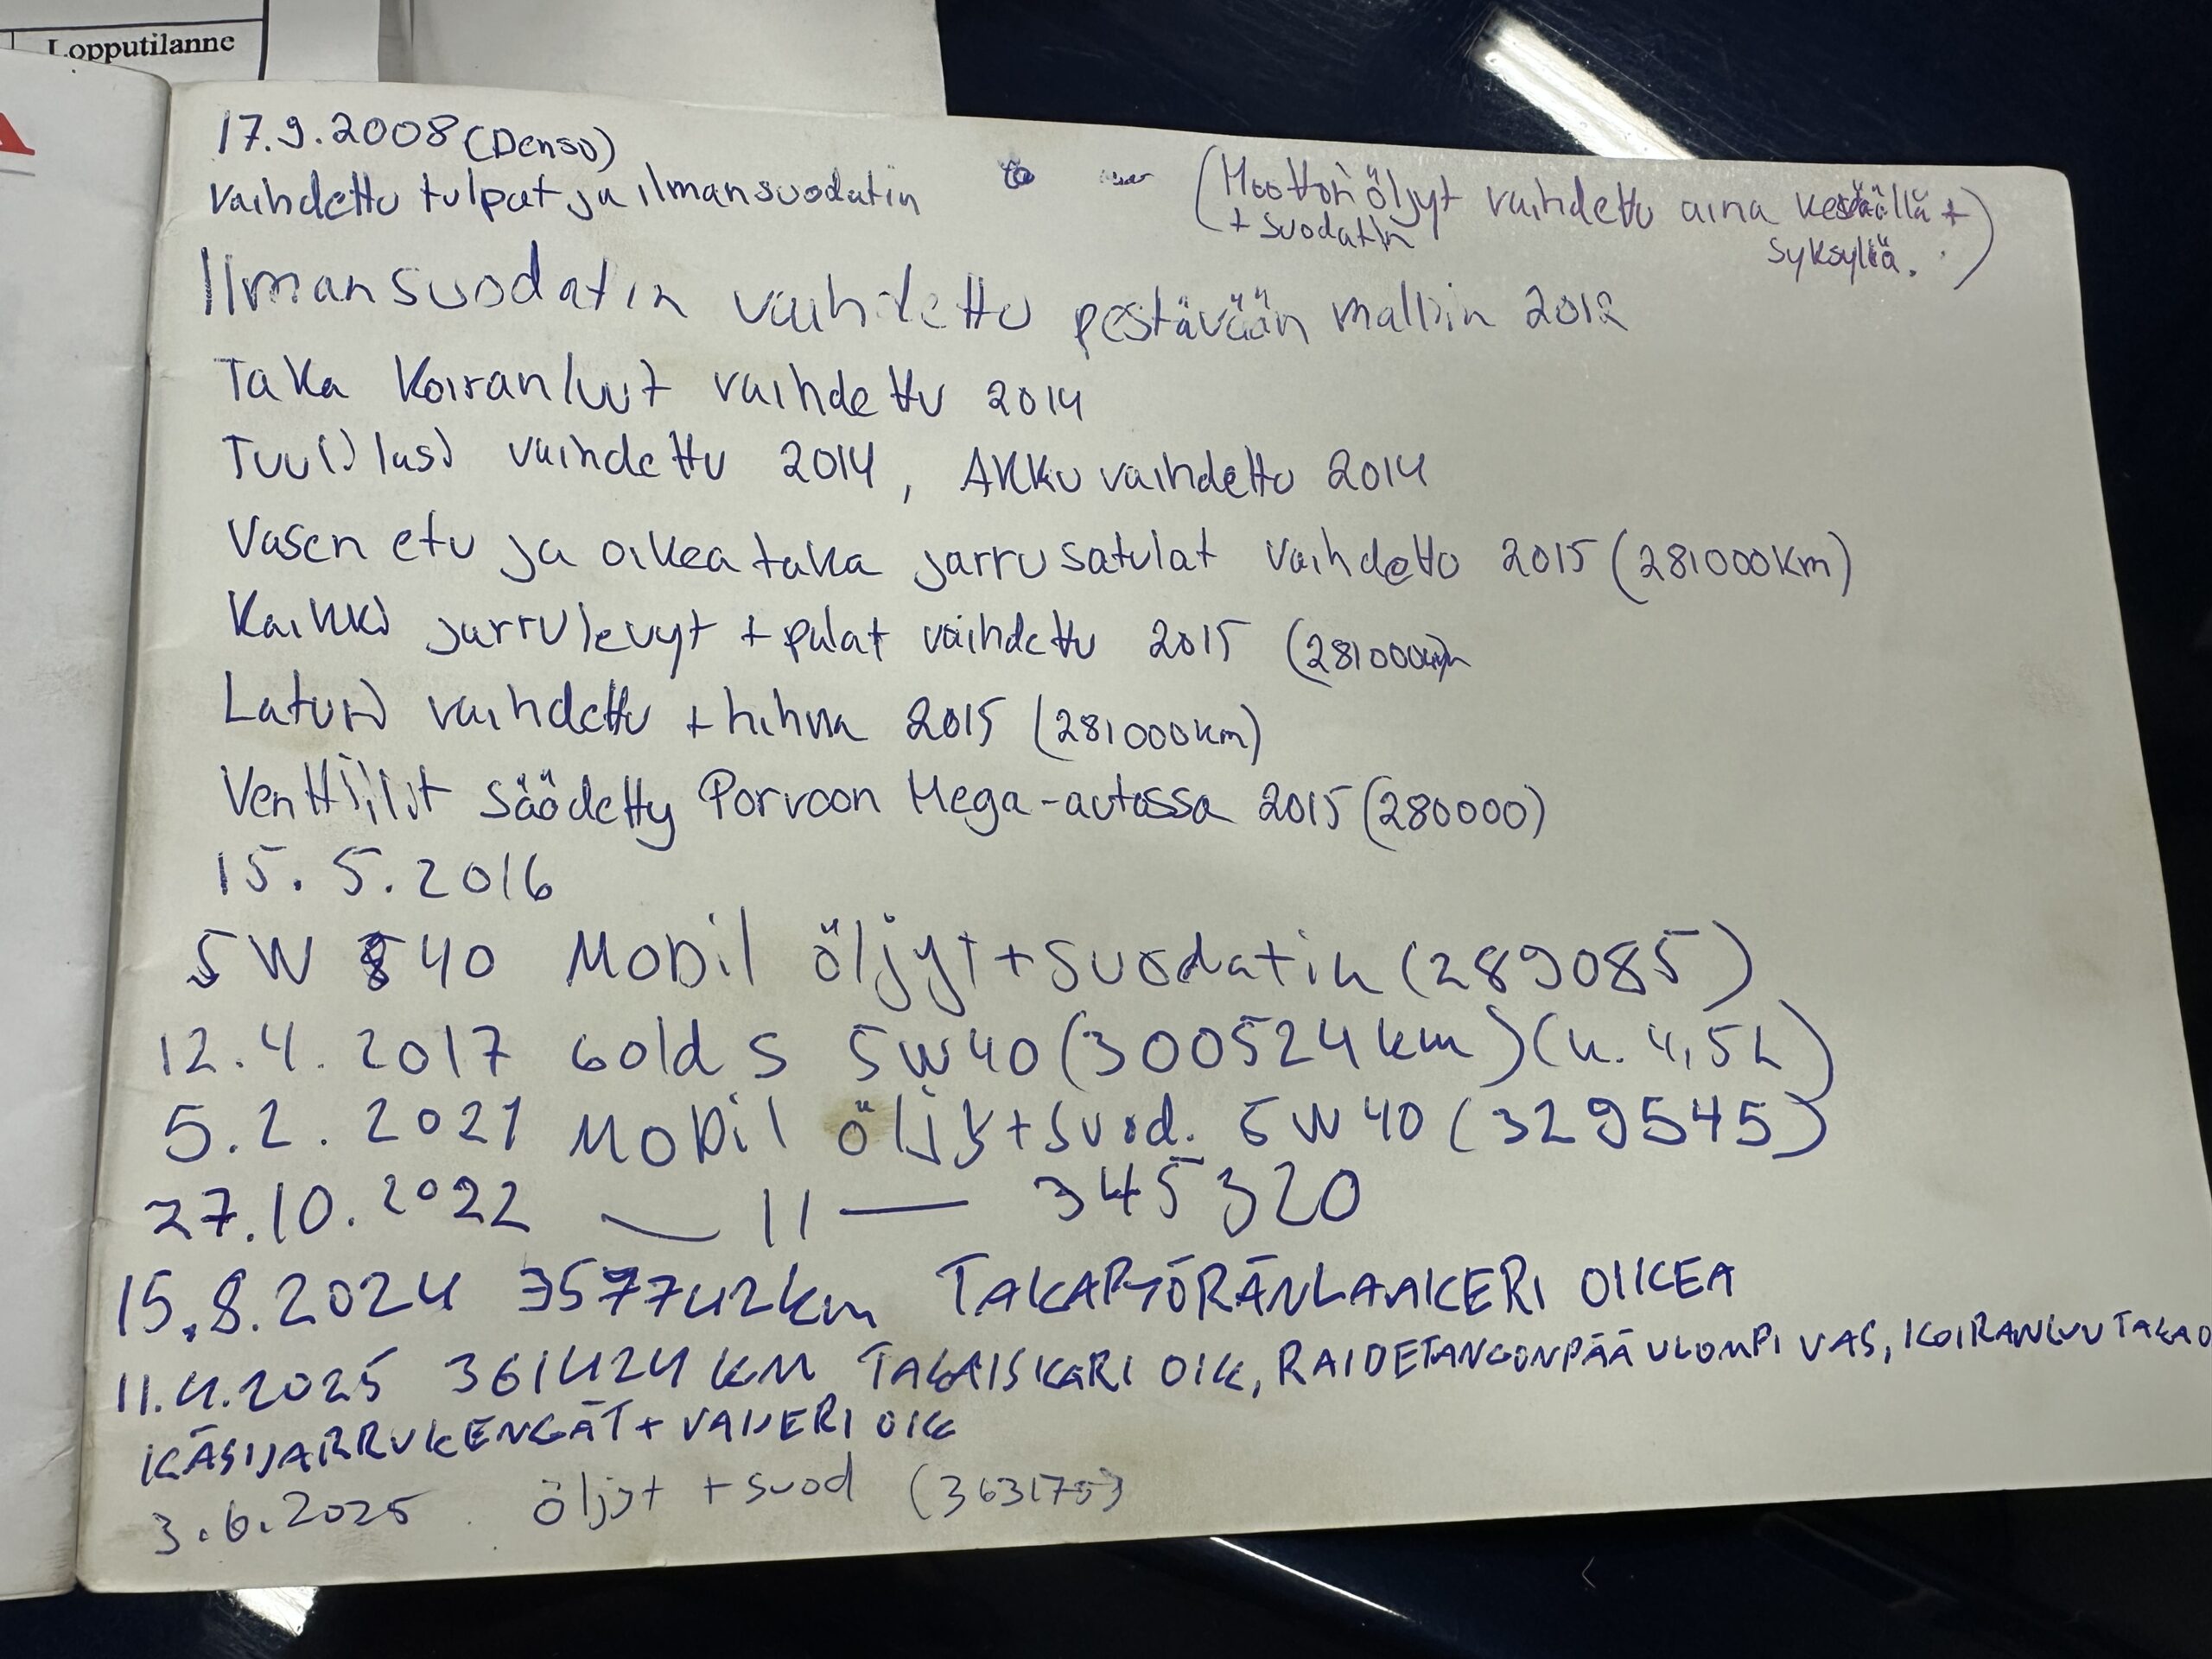 Lopputilanne
17.9.2008 (Denso)
Vaihdettu tulpat ja ilmansuodatin
(Moottori öljyt vaihdettu aina kesäällä +
+ suodatin
syksyllä.)
Ilmansuodatin vaihdettu pestävään malliin 2012
Taka Koiranluut vaihdettu 2014
Tuulilasi vaihdettu 2014, Akku vaihdettu 2014
Vasen etu ja oikea taka jarrusatulat vaihdettu 2015 (281000km)
Kaikki jarrulevyt + palat vaihdettu 2015 (281000km
Laturi vaihdettu + hihna 2015 (281000km)
Venttiilit säädetty Porvoon Mega-autossa 2015 (280000)
15.5.2016
5W 40 Mobil öljyt + suodatin (289085)
12.4.2017 Gold S 5W40 (300524km) (n. 4,5L)
5.2.2021 Mobil öljy + suod. 5W40 (329545)
27.10.2022 — 11 — 345320
15.8.2024 357742km TAKAPYÖRÄNLAAKERI OIKEA
11.4.2025 361424 KM TAKAISKARI OIK, RAIDETANGONPÄÄ ULOMPI VAS, KOIRANLUU TAKA O
KÄSIJARRUKENGÄT + VAIJERI OIK
3.6.2025 öljyt + suod